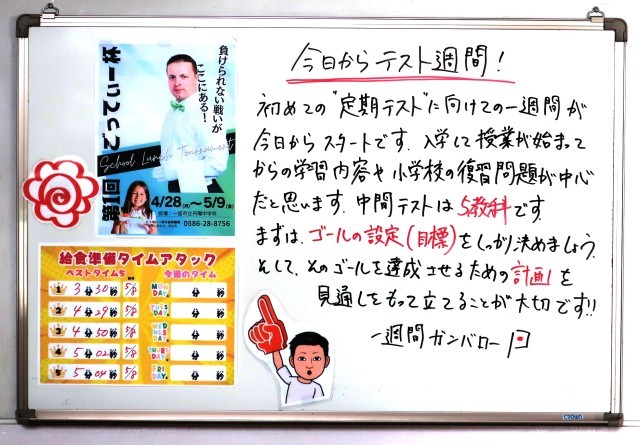 今日からテスト週間！
初めての“定期テスト”に向けての一週間が
今日からスタートです．入学して授業が始まって
からの学習内容や小学校の復習問題が中心
だと思います．中間テストは5教科です．
まずは、ゴールの設定(目標)をしっかり決めましょう．
そして、そのゴールを達成させるための計画を
見通しをもって立てることが大切です!!
一週間ガンバロー
負けられない戦いが
ここにある！
第1回
School Lunch Tournament
4/28(月)〜5/9(金)
0586-28-8756
給食準備タイムアタック
ベストタイム5
今週のタイム
1 3分30秒 5/8
MONDAY 分 秒
2 4分29秒 5/8
TUESDAY 分 秒
3 4分50秒 5/8
WEDNESDAY 分 秒
4 5分02秒 5/8
THURSDAY 分 秒
5 5分04秒 5/8
FRIDAY 分 秒
CROWN